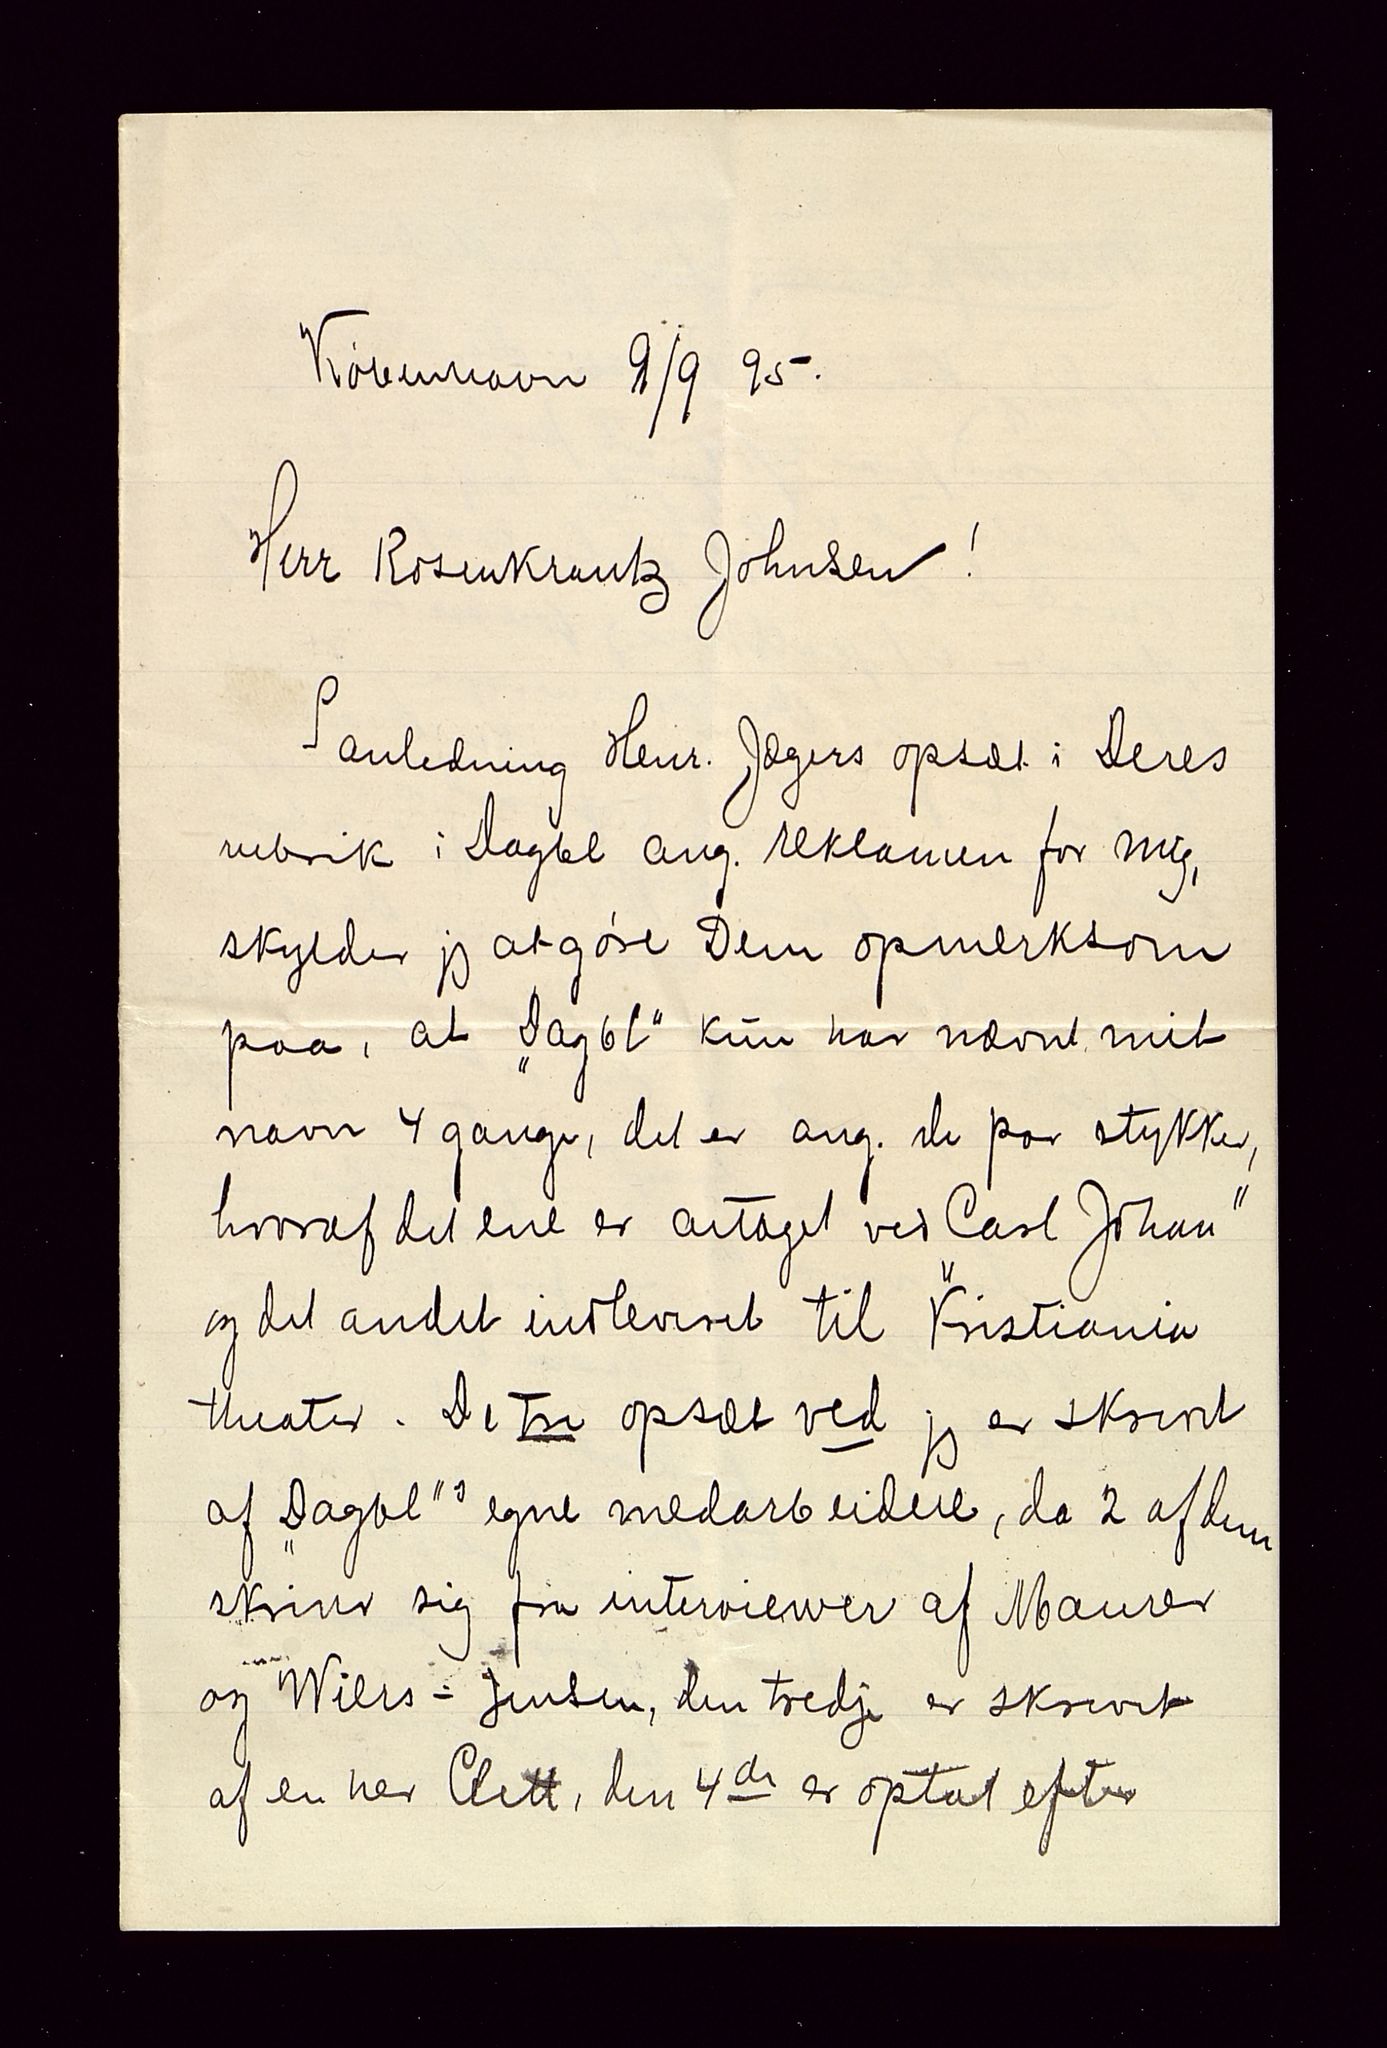 København 9/9 95.
Herr Rosenkrantz Johnsen!
I anledning Henr. Jægers opsæt i Deres
rubrik i Dagbl ang. reklamen for mig,
skylder jg at gøre Dem opmerksom
paa, at „Dagbl“ kun har nævnt mit
navn 4 gange, det er ang. de par stykker,
hvoraf det ene er antaget ved „Carl Johan“
og det andet indleveret til Kristiania
theater. De tre opsæt ved jg er skrevet
af „Dagbl“s egne medarbeidere, da 2 af dem
skriver sig fra interviewer af Maurer
og Wiers-Jensen, den tredje er skrevet
af en her Clett, den 4de er optat efter